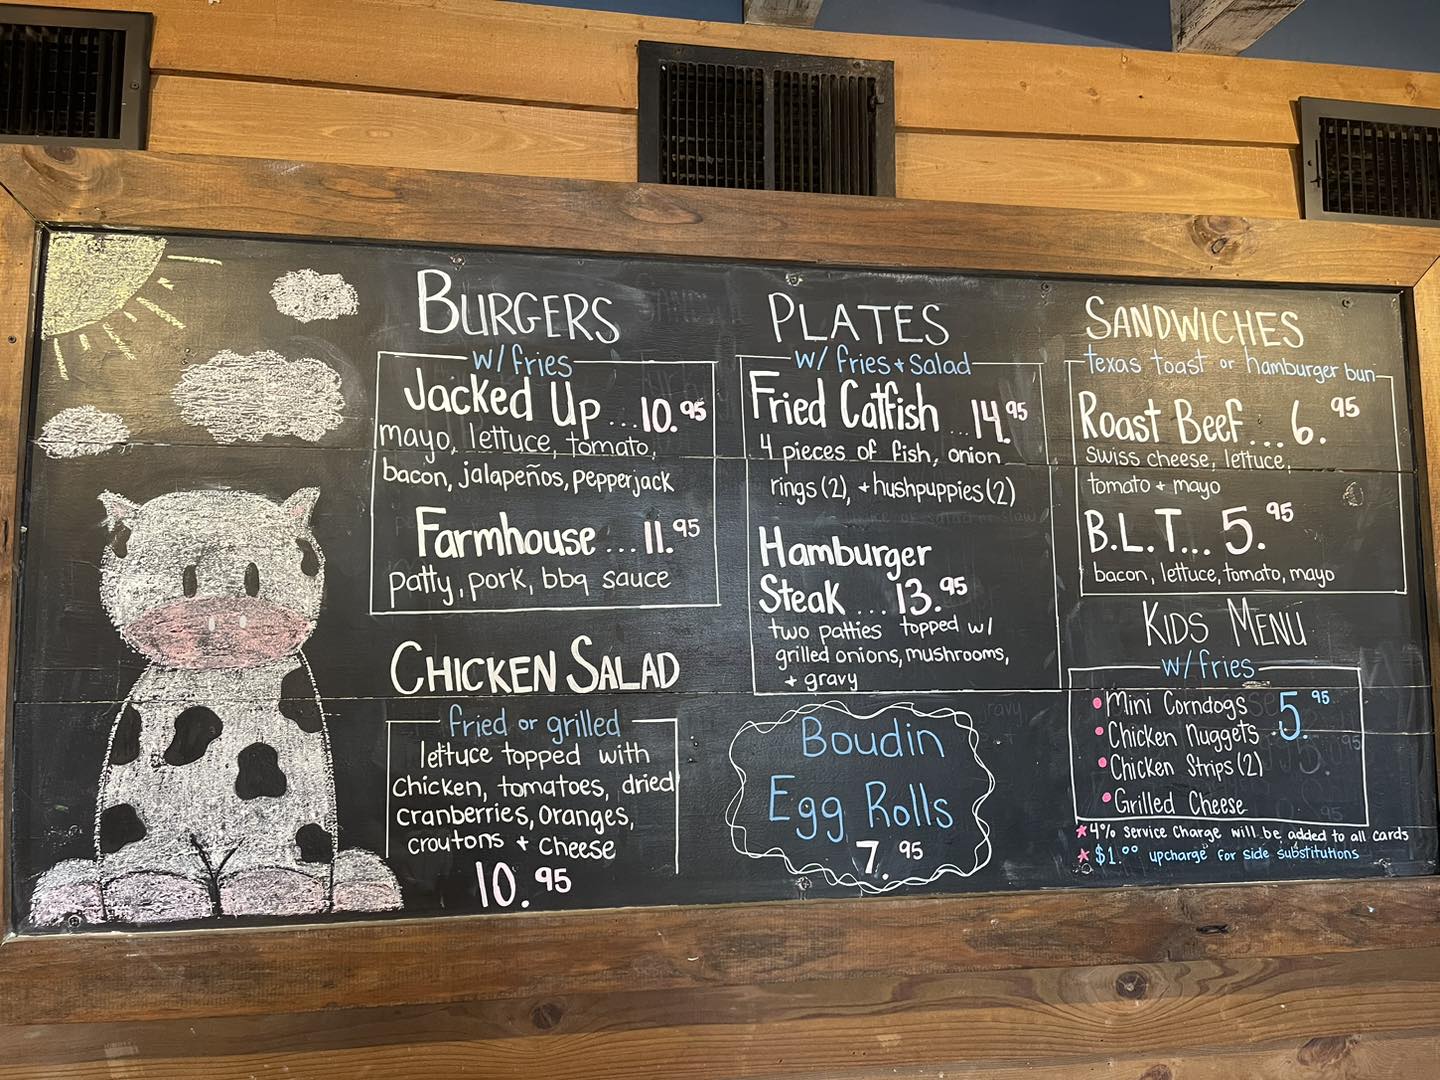 BURGERS
w/ fries
Jacked Up...10.95
mayo, lettuce, tomato,
bacon, jalapeños, pepperjack
Farmhouse...11.95
patty, pork, bbq sauce
CHICKEN SALAD
fried or grilled
lettuce topped with
chicken, tomatoes, dried
cranberries, oranges,
croutons + cheese
10.95
PLATES
w/ fries + salad
Fried Catfish...14.95
4 pieces of fish, onion
rings (2), + hushpuppies (2)
Hamburger
Steak...13.95
two patties topped w/
grilled onions, mushrooms,
+ gravy
Boudin
Egg Rolls
7.95
SANDWICHES
texas toast or hamburger bun
Roast Beef...6.95
swiss cheese, lettuce,
tomato + mayo
B.L.T...5.95
bacon, lettuce, tomato, mayo
KIDS MENU
w/ fries
• Mini Corndogs 5.95
• Chicken Nuggets
• Chicken Strips (2)
• Grilled Cheese
* 4% service charge will be added to all cards
* $1.00 upcharge for side substitutions